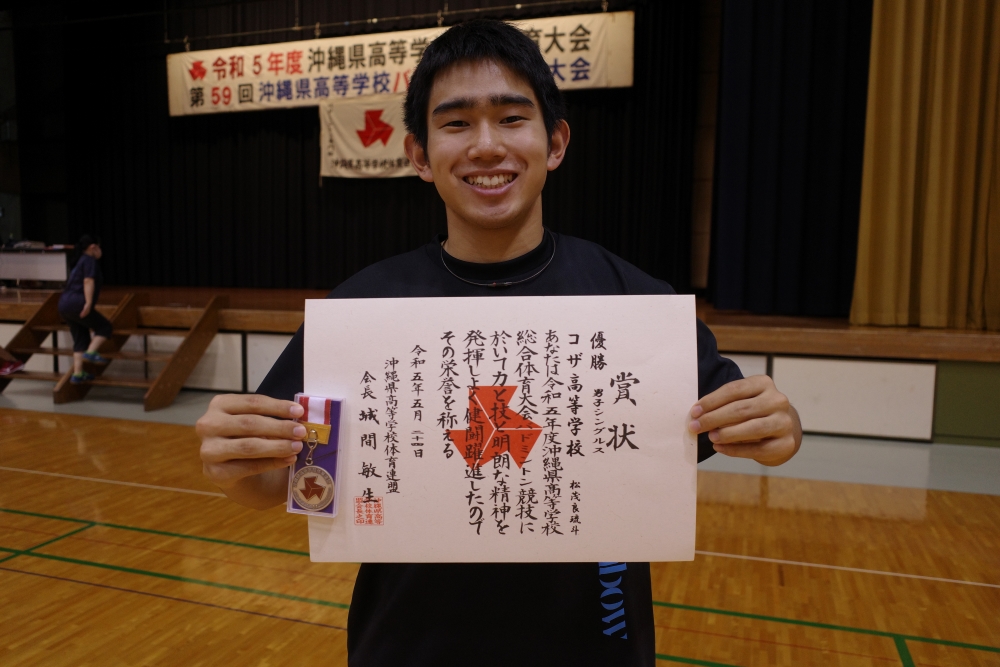 令和5年度沖縄県高等学 育大会
第59回沖縄県高等学校バ 大会
沖縄県高等学校体育連
賞状
優勝 男子シングルス
コザ高等学校 松茂良琉斗
あなたは令和五年度沖縄県高等学校
総合体育大会バドミントン競技に
於いて力と技と明朗な精神を
発揮しよく健闘躍進したので
その栄誉を称える
令和五年五月二十四日
沖縄県高等学校体育連盟
会長 城間敏生
沖縄県高等
学校体育連
盟会長之印
DOW